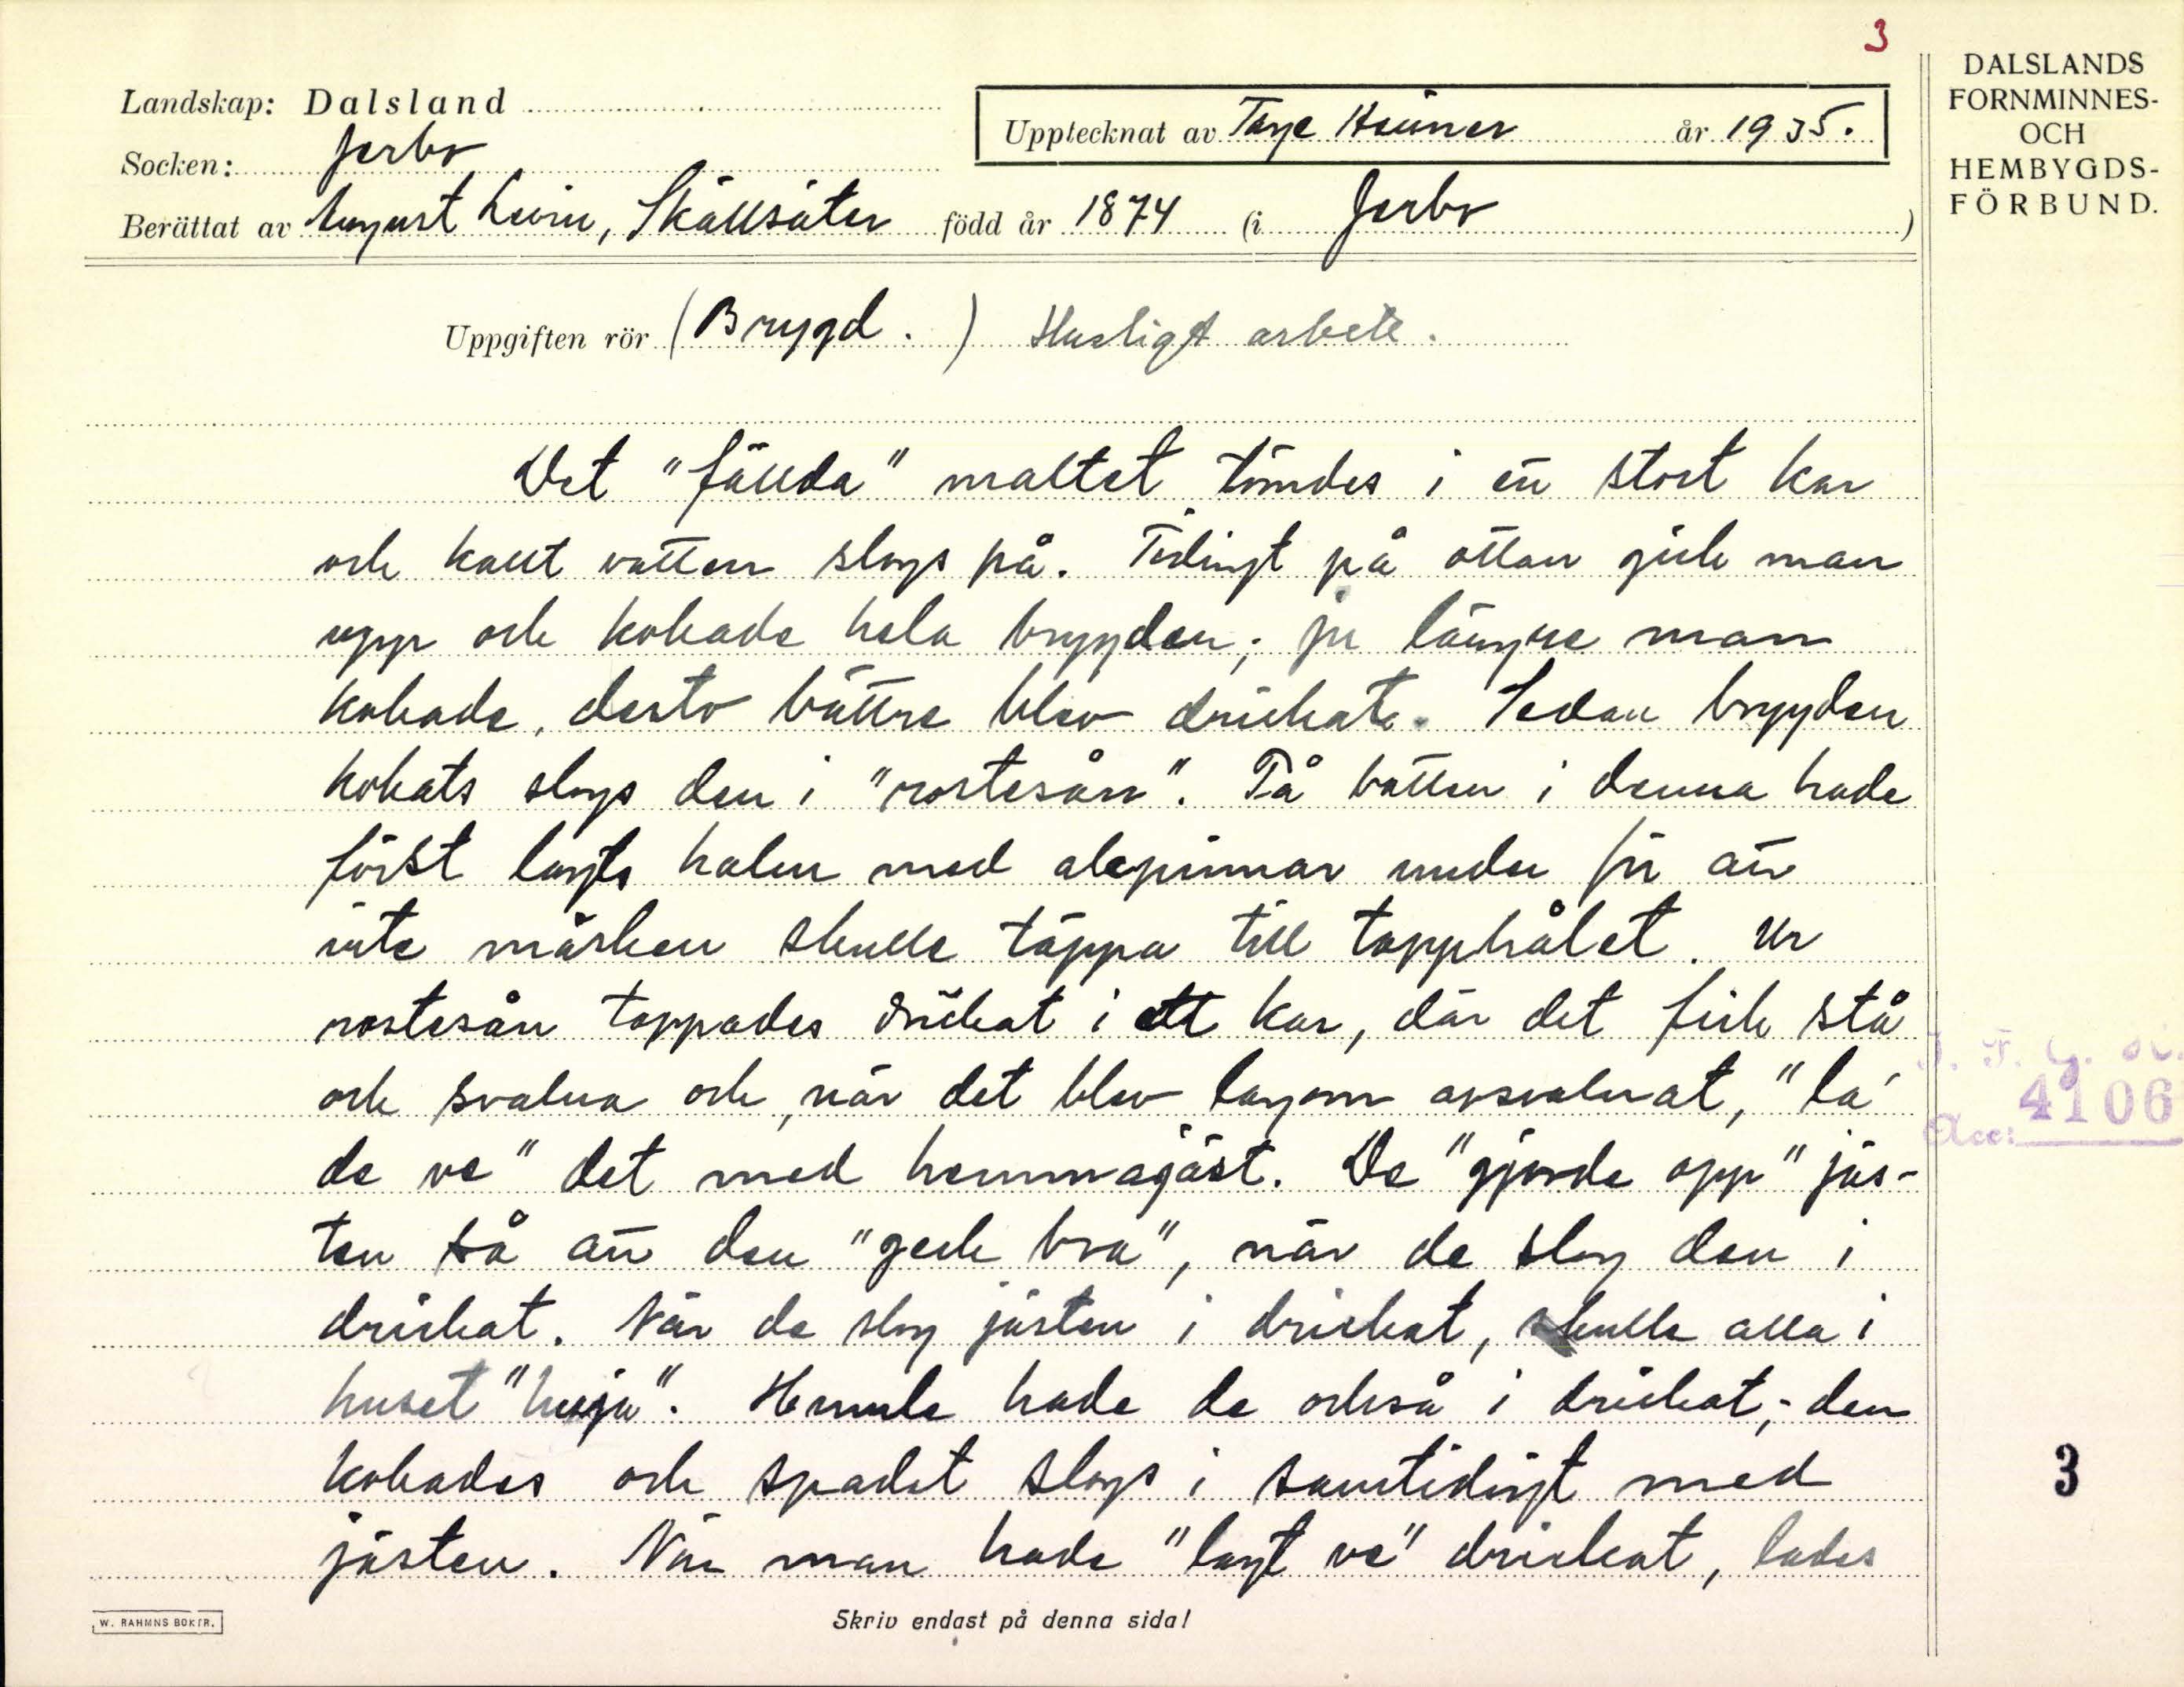 3
DALSLANDS
FORNMINNES-
OCH
HEMBYGDS-
FÖRBUND.
Landskap: Dalsland
Upptecknat av Tage Heimer år 1935.
Socken: Jerbo
Berättat av August Levin, Skällsäter född år 1874 (i Jerbo )
Uppgiften rör (Brygd.) Husligt arbete.
Det "fällda" maltet tömdes i ett stort kar
och kallt vatten slogs på. Tidingt på ottan gick man
upp och kokade hela brygden; ju längre man
kokade, desto bättre blev drickat. Sedan brygden
kokats slogs den i "rostesån". På botten i denna hade
först lagts halm med alepinnar under för att
inte mäsken skulle täppa till tapphålet. Ur
rostesån tappades drickat i ett kar, där det fick stå
och svalna och, när det blev lagom avsvalnat, "la'
de ve" det med hemmagjäst. De "gjorde opp" jäs-
ten så att den "geck bra", när de slog den i
drickat. När de slog jästen i drickat, skulle alla i
huset "huja". Humle hade de också i drickat; den
kokades och spadet slogs i samtidigt med
jästen. När man hade "lagt ve" drickat, lades
4106
Acc:
3
W. RAHMNS BOKTR.
Skriv endast på denna sida!